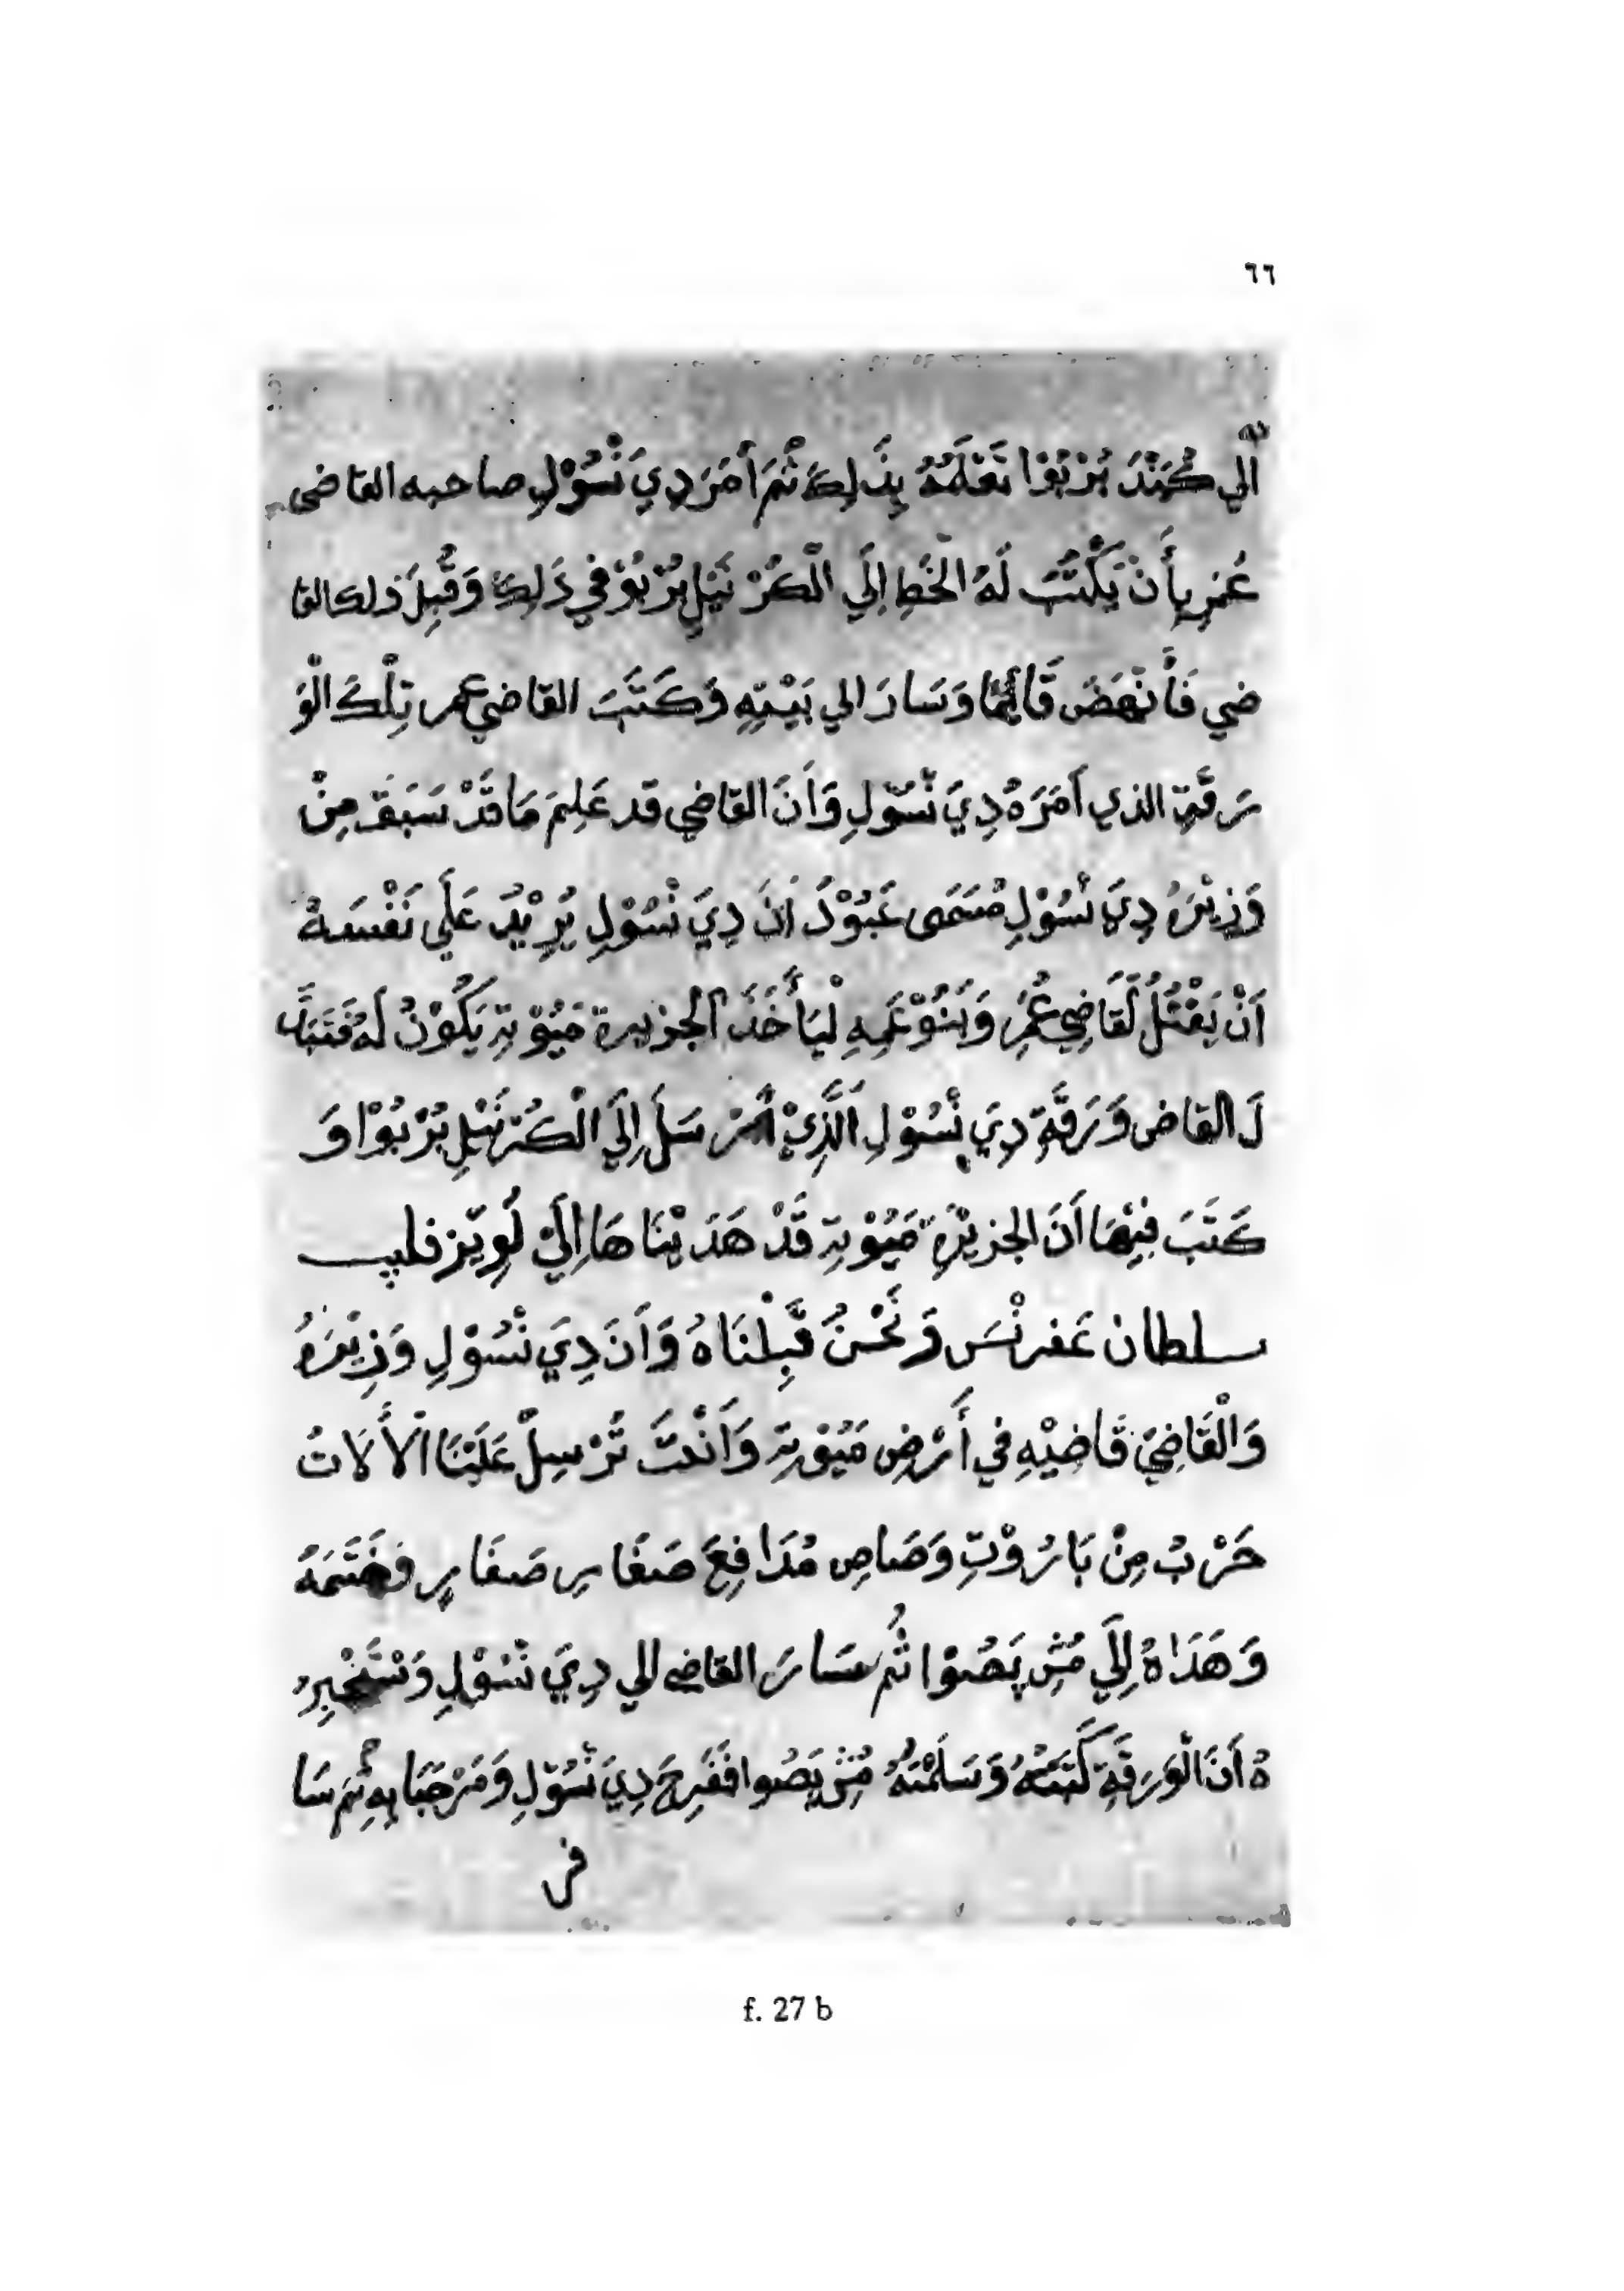 ٦٦
اَلي كُمَنْدَ بُرْبُوْا نَعْلَمُهُ بِذَلِكَ ثُمَ أَمَرَ دِيَ نْسُوْلِ صاحبه القاضى
عُمَرِ بِأَنْ يَكْتُبَ لَهُ الْخَطِ اِلَي الْكُرْنَيْلِ بُرْبُوْ في ذَلِكَ وَقُبِلَ ذلك القا
ضي فَأَنْهَضَ قَائِمًا وَسَارَ الي بَيْتِهِ وَكَتَبَ القاضي عمر تِلْكَ الْوَ
رَقَةِ الذي اَمَرَهُ دِيَ نْسُوْلِ وَاَنَ القاضي قد عَلِمَ مَا قَدْ سَبَقَ مِنْ
وَزِيْرُ دِيَ نْسُوْلِ مُسَمَى عَبُوْدُ اَنَ دِيَ نْسُوْلِ يُرِيْدُ عَلَي نَفْسَهُ
اَنْ يَقْتُلُ لَقَاضِي عُمَرِ وَبَنُوْ عَمِهِ لْيَأَخَذَ الجزيرة مَيُوْتِ يَكُوْنُ لَهُ فَتَبَدَّ
لَ القاض وَرَقَةِ دِيَ نْسُوْلِ اَلَّذِيْ اُرْسَلَ اِلَي الْكُرْنَيْلِ بُرْبُوْا وَ
كَتَبَ فِيْهَا اَنَ الجزيْرَةِ مَيُوْتِ قَدْ هَدَيْنَاهَا اِلَيْ لُوِيْز فليپ
سلطان عَفرنْسَ وَنَحْنُ قَبِلْنَاهُ وَاَنَ دِيَ نْسُوْلِ وَزِيْرَهُ
وَالْقَاضِيَ قَاضِيْهِ في أَرْضِ مَيُوْتِ وَاَنْتَ تُرْسِلْ عَلَيْنَا اْلأَلَاتُ
حَرْبُ مِنْ بَارُوْتِ وَصَاصِ مُدَافِعَ صَغَارِ صَغَارٍ فَخَتَمَهُ
وَهَدَاهُ اِلَي مُسِ پَصُوْا ثُم سَارَ القاضي الي دِيَ نْسُوْلِ وَسْتَخْبِرِ
هُ اَنَ الْوَرَقَةِ كَتَبْتُهُ وَسَلَمْتُهُ مُسِ پَصُوا فَفَرِحَ دِيَ نْسُوْلِ وَمَرْحَبَا بِهِ ثُم سَا
فر
f. 27 b